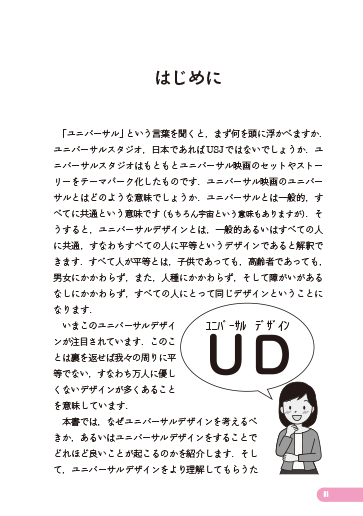 はじめに
「ユニバーサル」という言葉を聞くと，まず何を頭に浮かべますか．
ユニバーサルスタジオ，日本であればUSJではないでしょうか．ユ
ニバーサルスタジオはもともとユニバーサル映画のセットやストー
リーをテーマパーク化したものです．ユニバーサル映画のユニバー
サルとはどのような意味でしょうか．ユニバーサルとは一般的，す
べてに共通という意味です（もちろん宇宙という意味もありますが）．そ
うすると，ユニバーサルデザインとは，一般的あるいはすべての人
に共通，すなわちすべての人に平等というデザインであると解釈で
きます．すべて人が平等とは，子供であっても，高齢者であっても，
男女にかかわらず，また，人種にかかわらず，そして障がいがある
なしにかかわらず，すべての人にとって同じデザインということに
なります．
いまこのユニバーサルデザイ
ンが注目されています．このこ
とは裏を返せば我々の周りに平
等でない，すなわち万人に優し
くないデザインが多くあること
を意味しています．
ユニバーサル デザイン
UD
本書では，なぜユニバーサルデザインを考えるべ
きか，あるいはユニバーサルデザインをすることで
どれほど良いことが起こるのかを紹介します．そし
て，ユニバーサルデザインをより理解してもらうた
iii